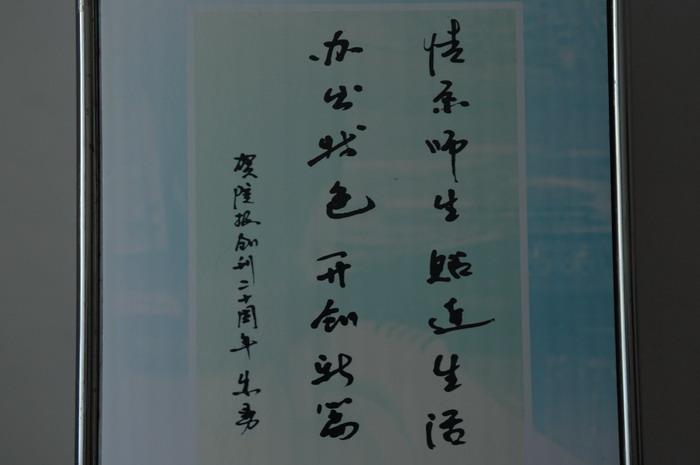 情系师生 贴近生活
办出特色 开创新篇
贺院报创刊二十周年 朱勇